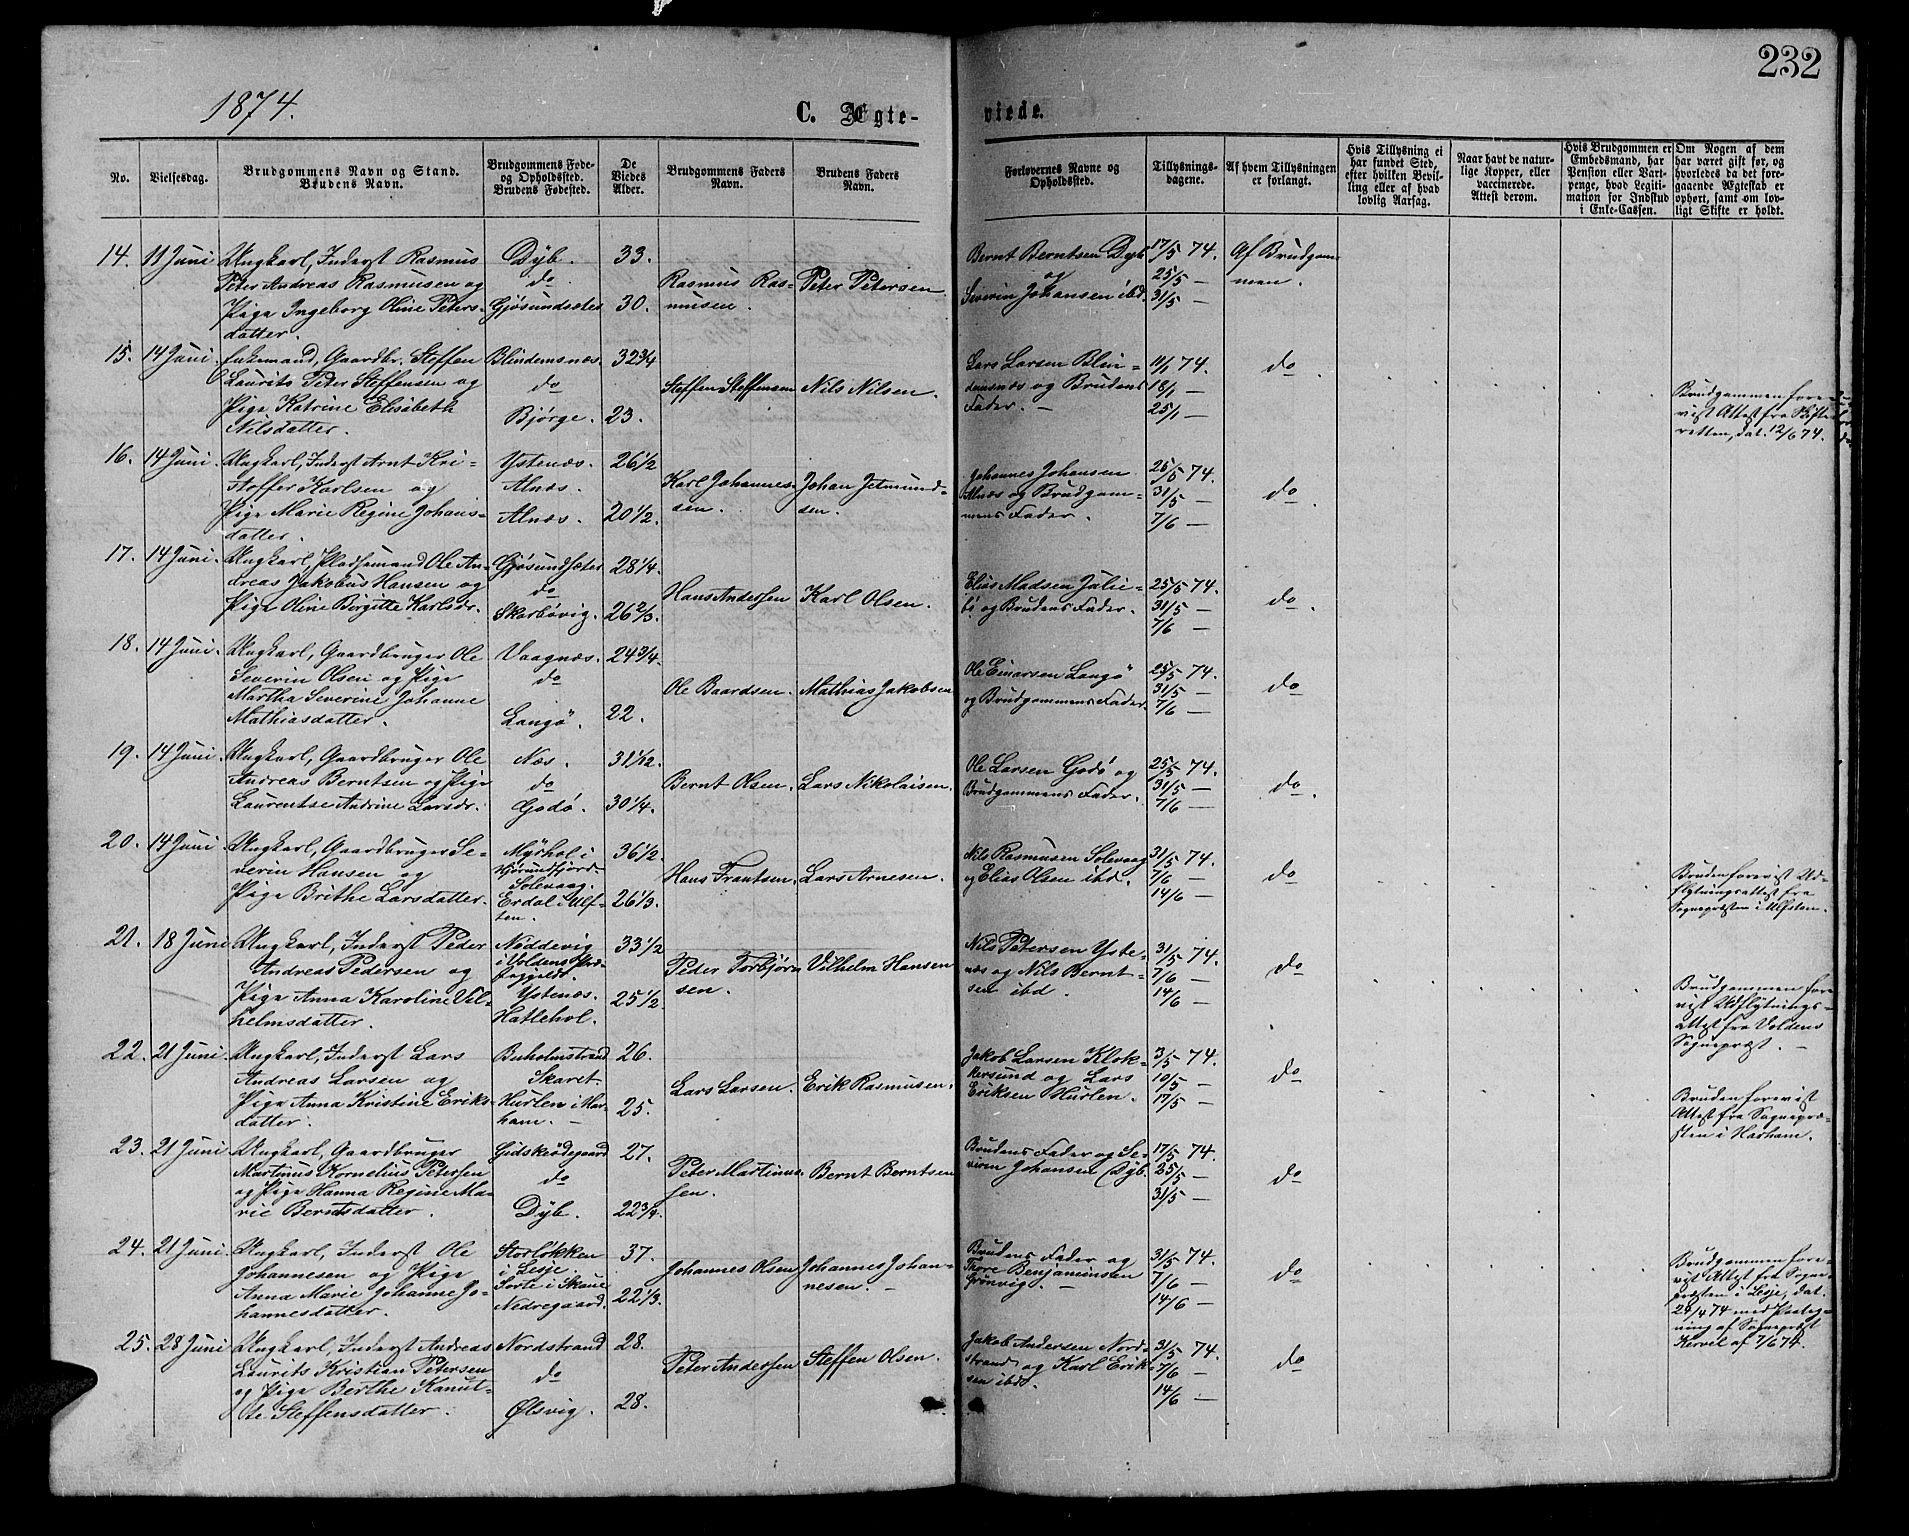 232
1874.
C. Ægte-
viede.
No.
Vielsesdag.
Brudgommens Navn og Stand.
Brudens Navn.
Brudgommens Føde-
og Opholdssted.
Brudens Fødested.
De
Viedes
Alder.
Brudgommens Faders
Navn.
Brudens Faders
Navn.
Forlovernes Navne og
Opholdssted.
Tillysnings-
dagene.
Af hvem Tillysningen
er forlangt.
Hvis Tillysning ei
har fundet Sted,
efter hvilken Bevil-
ling eller af hvad
lovlig Aarsag.
Naar havt de natur-
lige Kopper, eller
vaccinerede.
Attest derom.
Hvis Brudgommen er
Embedsmand, har
Pension eller Vart-
penge, hvad Legiti-
mation for Indskud
i Enke-Cassen.
Om Nogen af dem
har været gift før, og
hvorledes da det fore-
gaaende Ægteskab er
ophørt, samt om lov-
ligt Skifte er holdt.
14. 11 Juni
Ungkarl, Inderst Rasmus
Peter Andreas Rasmusen og
Pige Ingeborg Oline Peters-
datter.
Dyb.
do
Gjøsundsæter
33.
30.
Rasmus Ras-
musen.
Peter Petersen.
Bernt Berntsen Dyb
og
Severin Johansen ibd.
17/5 74.
25/5 —
31/5 —
Af Brudgom-
men.
15. 14 Juni.
Enkemand, Gaardbr. Steffen
Laurits Peter Steffensen og
Pige Katrine Elisabeth
Nilsdatter.
Blindemsnæs.
do
Bjørge.
32 3/4
23.
Steffen Steffensen
Nils Nilsen.
Lars Larsen Blin-
demsnæs og Brudens
Fader. —
11/1 74.
18/1 —
25/1 —
do.
Brudgommen fore-
vist Attest fra Skifte-
retten, dat. 12/6 74.
16. 14 Juni.
Ungkarl, Inderst Arnt Kri-
stoffer Karlsen og
Pige Marie Regine Johans-
datter.
Ystenæs.
Alnæs.
Alnæs.
26 1/2
20 1/2.
Karl Johannes-
sen.
Johan Jetmund-
sen.
Johannes Johansen
Alnæs og Brudgom-
mens Fader.
25/5 74.
31/5 —
7/6 —
do.
17. 14 Juni.
Ungkarl, Pladsemand Ole An-
dreas Jakobus Hansen og
Pige Oline Birgitte Karlsdr.
Gjøsundsæter
do
Skarbøvig.
28 1/4.
26 2/3.
Hans Andersen
Karl Olsen.
Elias Madsen Julie-
bø og Brudens Fader.
25/5 74.
31/5 —
7/6 —
do.
18. 14 Juni.
Ungkarl, Gaardbruger Ole
Severin Olsen og Pige
Martha Severine Johanne
Mathiasdatter.
Vaagnæs.
do
Langø.
24 3/4.
22.
Ole Baardsen.
Mathias Jakobsen
Ole Einarsen Langø
og Brudgommens Fader.
25/5 74.
31/5 —
7/6 —
do
19. 14 Juni.
Ungkarl, Gaardbruger Ole
Andreas Berntsen og Pige
Laurentse Andrine Larsdr.
Næs.
do
Godø.
31 1/12.
30 1/4.
Bernt Olsen.
Lars Nikolaisen.
Ole Larsen Godø og
Brudgommens Fader.
25/5 74.
31/5 —
7/6 —
do.
20. 14 Juni
Ungkarl, Gaardbruger Se-
verin Hansen og
Pige Brithe Larsdatter.
Myrhol i
Hjørundfjord.
Solevaag.
Erdal i Ulf-
sten.
36 1/2.
26 1/3.
Hans Frantsen.
Lars Arnesen.
Nils Rasmusen Solevaag
og Elias Olsen ibd.
31/5 74.
7/6 —
14/6 —
do
Bruden forevist Ud-
flytningsattest fra
Sognepræsten i Ulfsten.
21. 18 Juni
Ungkarl, Inderst Peder
Andreas Pedersen og
Pige Anna Karoline Vil-
helmsdatter.
Nøddevig
i Voldens Præ-
stegjeldt.
Ystenæs.
Hatlehol.
33 1/2
25 1/2
Peder Torbjørn-
sen.
Vilhelm Hansen
Nils Petersen Yste-
næs og Nils Bernt-
sen ibd.
31/5 74.
7/6 —
14/6 —
do
Brudgommen fore-
vist Udflytnings-
attest fra Voldens
Sognepræst. —
22. 21 Juni.
Ungkarl, Inderst Lars
Andreas Larsen og
Pige Anna Kristine Eriks-
datter.
Buholmstrand
Skaret.
Hurlen i Har-
ham. —
26.
25.
Lars Larsen.
Erik Rasmusen.
Jakob Larsen Klok-
kersund og Lars
Eriksen Hurlen.
3/5 74.
10/5 —
17/5 —
do
Bruden forevist
Attest fra Sognepræ-
sten i Harham.
23. 21 Juni
Ungkarl, Gaardbruger
Martinus Kornelius Petersen
og Pige Hanna Regine Ma-
rie Berntsdatter.
Gidskeødegaard
do
Dyb.
27.
22 3/4.
Peter Martinus-
sen.
Bernt Berntsen
Brudens Fader og Se-
verin Johansen Dyb.
17/5 74.
25/5 —
31/5 —
do
24. 21 Juni
Ungkarl, Inderst Ole
Johannesen og Pige
Anna Marie Johanne Jo-
hannesdatter.
Storløkken
i Lesje.
Nedregaard.
37.
22 1/3.
Johannes Olsen
Johannes Johan-
nesen. —
Brudens Fader og
Thore Benjaminsen
Grønvig. —
31/5 74.
7/6 —
14/6 —
do
Brudgommen fore-
vist Attest fra Sogne-
præsten i Lesje, dat.
24/4 74 med Paateg-
ning af Sognepræst
7/6 74.
25. 28 Juni
Ungkarl, Inderst Andreas
Laurits Kristian Petersen
og Pige Berthe Kanut-
te Steffensdatter.
Nordstrand
do
Ølsvig.
28.
28.
Peter Andersen
Steffen Olsen.
Jakob Andersen Nord-
strand og Karl Erik-
sen ibd.
31/5 74.
7/6 —
14/6 —
do